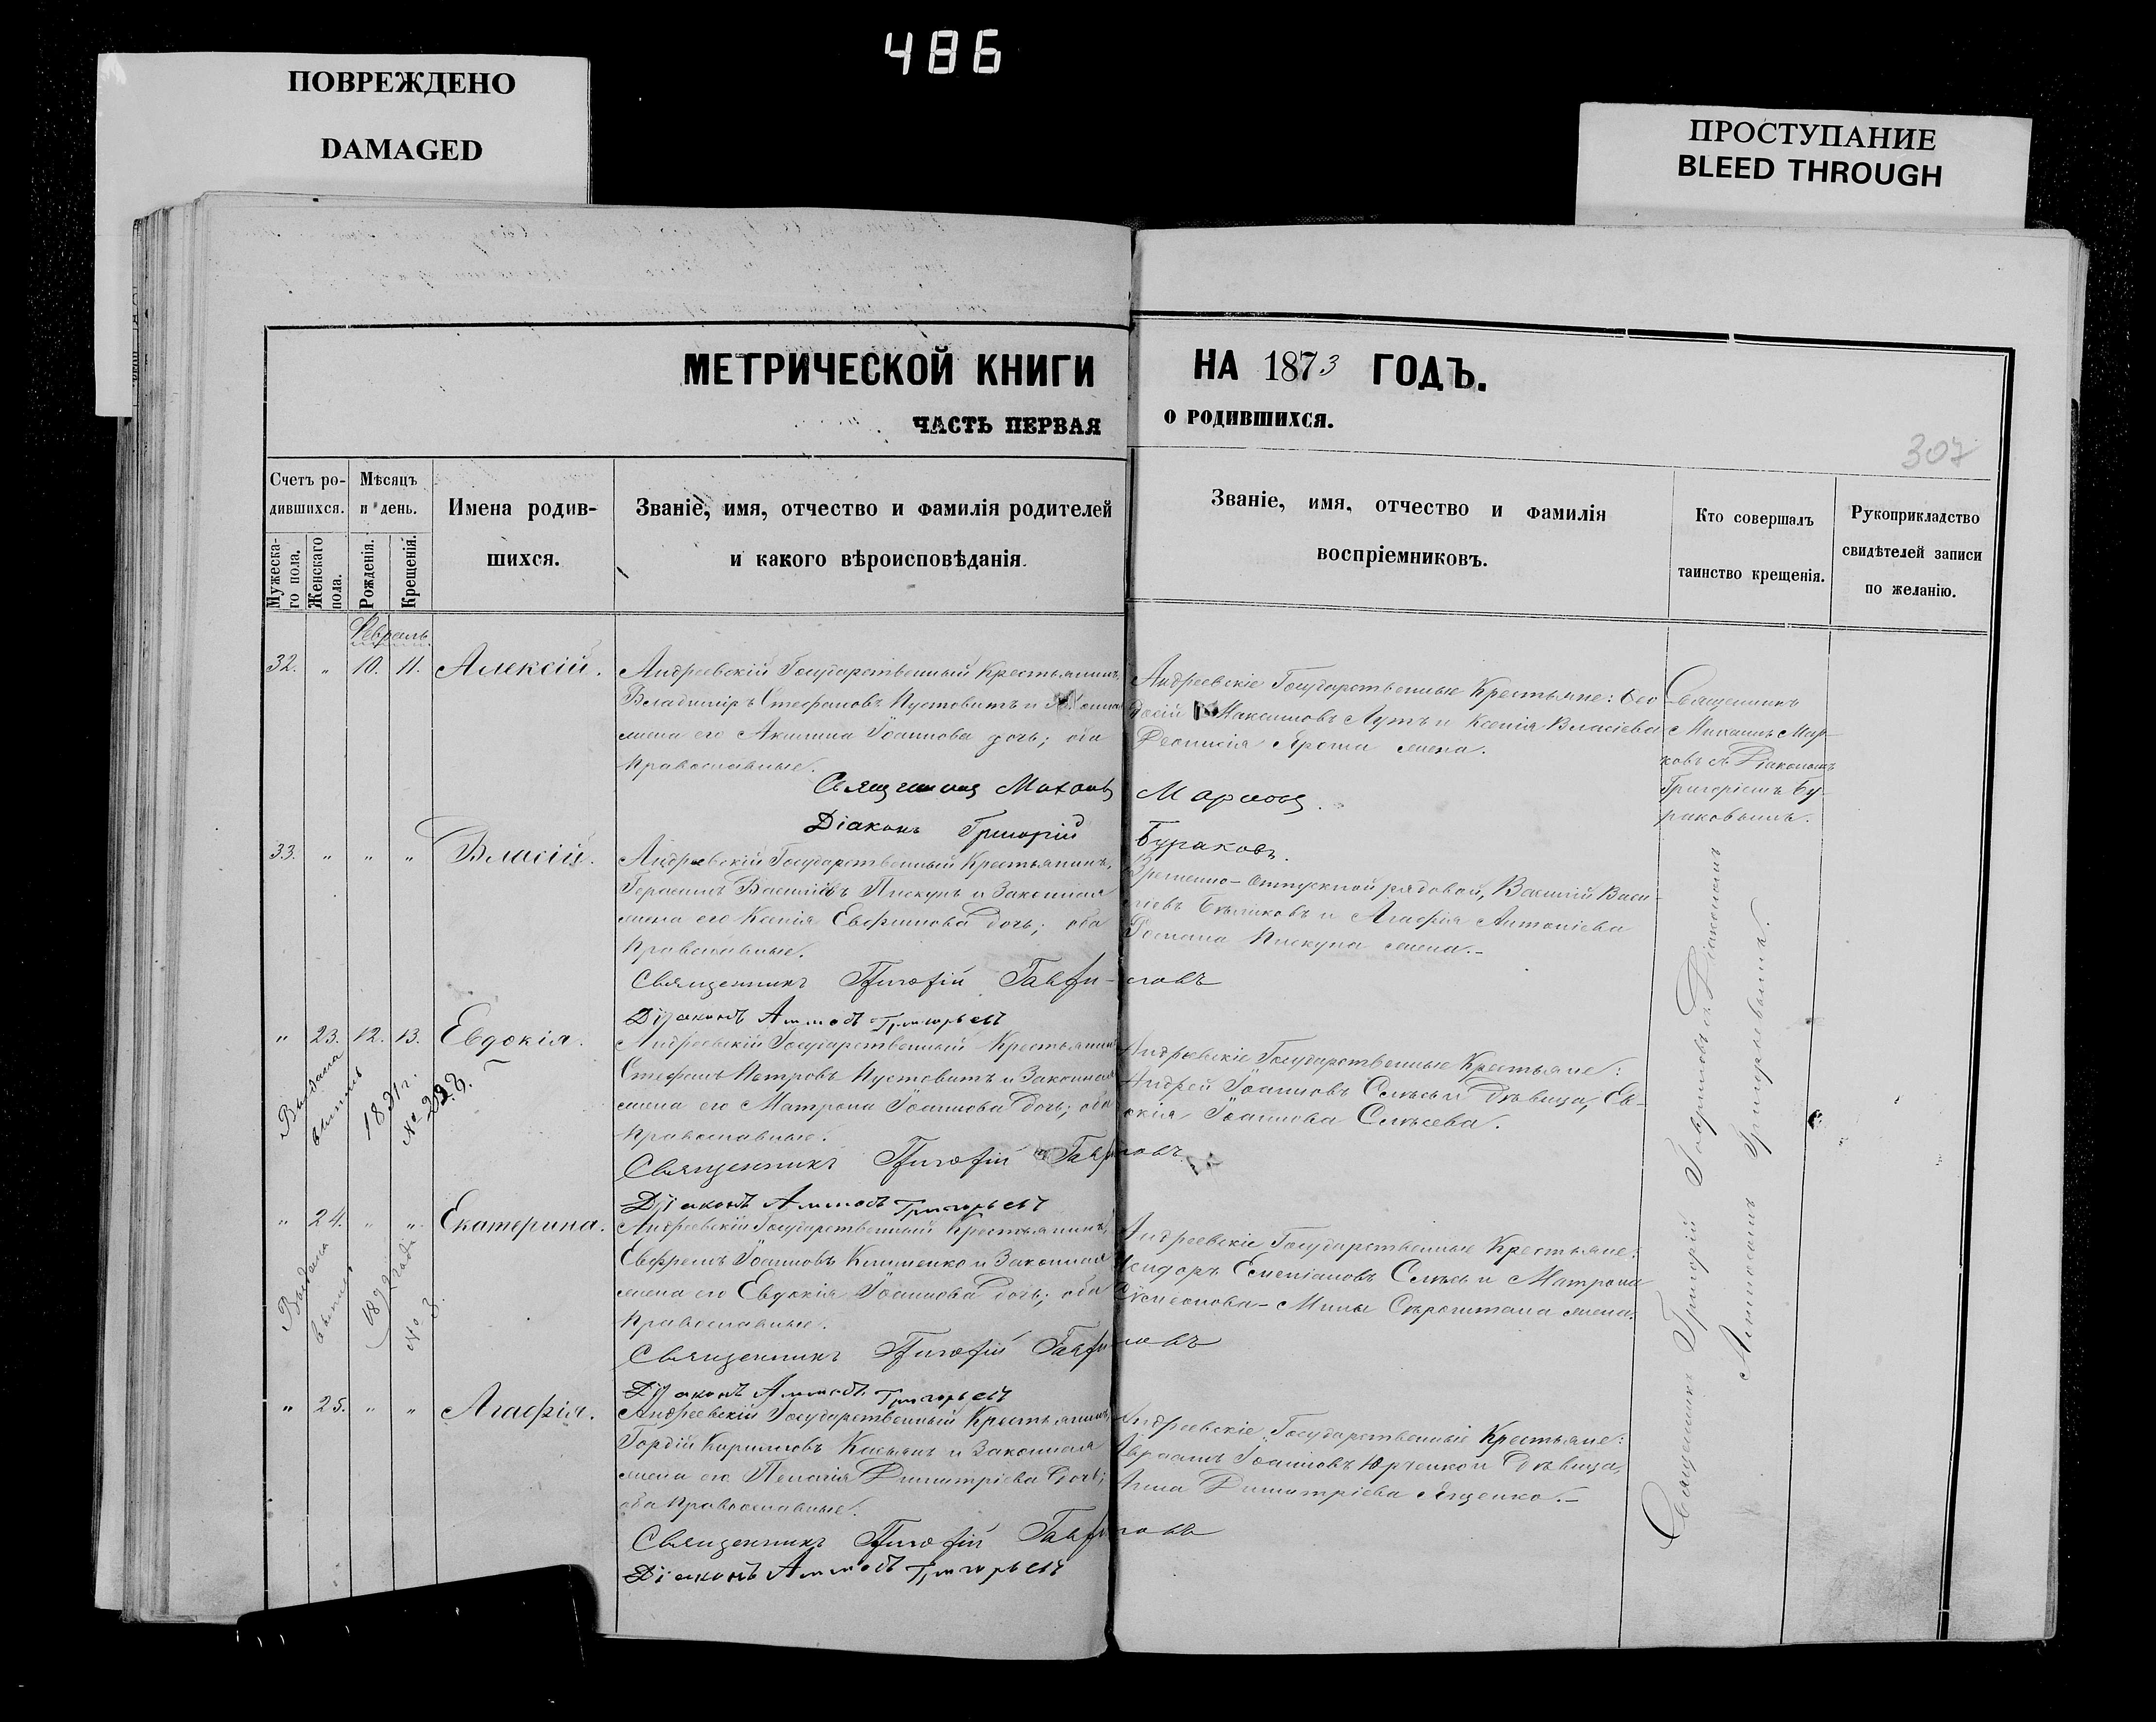 486
ПОВРЕЖДЕНО
DAMAGED
ПРОСТУПАНИЕ
BLEED THROUGH
МЕТРИЧЕСКОЙ КНИГИ НА 1873 ГОДЪ.
ЧАСТЬ ПЕРВАЯ О РОДИВШИХСЯ.
307
Счетъ ро-
дившихся.
Мужеска-
го пола.
Женскаго
пола.
Мѣсяцъ
и день.
Рожденія.
Крещенія.
Имена родив-
шихся.
Званіе, имя, отчество и фамилія родителей
и какого вѣроисповѣданія.
Званіе, имя, отчество и фамилія
воспріемниковъ.
Кто совершалъ
таинство крещенія.
Рукоприкладство
свидѣтелей записи
по желанію.
Февраль
32. " 10. 11. Алексій.
Андреевскій Государственный Крестьянинъ,
Владиміръ Стефановъ Пустовитъ и
жена его Акилина Іоаннова дочь; оба
Православные.
Андреевскіе Государственные Крестьяне: Ѳео
досій Максимовъ Лутъ и Ксенія Власіева
Діонисія Яроша жена.
Священникъ
Михаилъ Мар-
ковъ съ Діакономъ
Григоріемъ Бу-
раковымъ.
Священникъ Михаилъ Марковъ.
Діаконъ Григорій Бураковъ.
33. " " " Власій.
Андреевскій Государственный Крестьянинъ,
Герасимъ Пискунъ и Законная
жена его Ксенія Евфимова дочь; оба
Православные.
Временно-отпускной рядовой, Василій Васи-
льевъ и Агафія Антоніева
Романа Пискуна жена.-
Священникъ Григорій Гаври-ловъ
Діаконъ Григорьевъ
" 23. 12. 13. Евдокія.
Выдана
выпись
18 г.
№
Андреевскій Государственный Крестьянинъ
Стефанъ Петровъ Пустовитъ и Законная
жена его Матрона Іоаннова дочь; оба
Православные.
Андреевскіе Государственные Крестьяне:
Андрей Іоанновъ и Дѣвица, Ев-
докія Іоаннова
Священникъ Григорій Гавриловъ
Діаконъ Григорьевъ
" 24. " " Екатерина.
Выдана
выпись
года
№ 8.
Андреевскій Государственный Крестьянинъ,
Ефремъ Іоанновъ Клименко и Законная
жена его Евдокія Іоаннова дочь; оба
Православные.
Андреевскіе Государственные Крестьяне:
Исидоръ Емеліановъ и Матрона
Мины жена.
Священникъ Григорій Гавриловъ
Діаконъ Григорьевъ
" 25. " " Агафія.
Андреевскій Государственный Крестьянинъ,
Гордій Кирилловъ Касьянъ и Законная
жена его Пелагія Димитріева дочь;
оба Православные.
Андреевскіе Государственные Крестьяне:
Авраамъ Іоанновъ Юрченко и Дѣвица,
Анна Димитріева Ященко.-
Священникъ Григорій Гавриловъ
Діаконъ Григорьевъ
Священникъ Григорій Гавриловъ съ Діакономъ
Григорьевымъ.